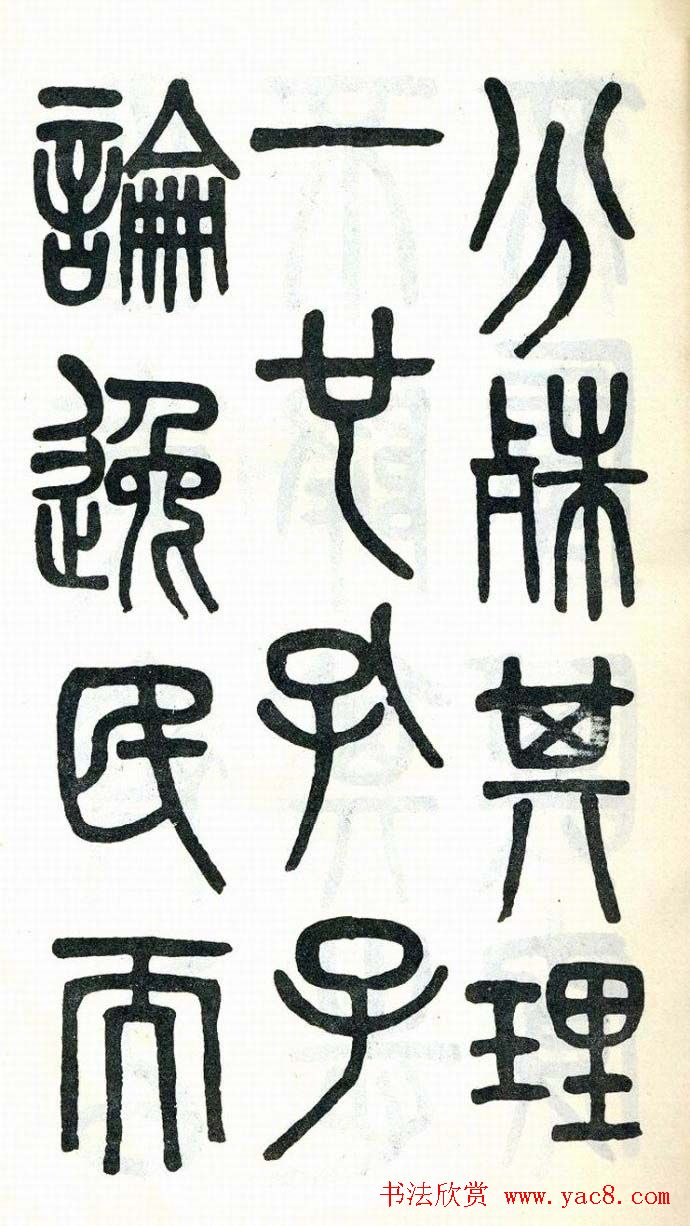 分殊其理
一也孔子
論逸民而
书法欣赏 www.yac8.com